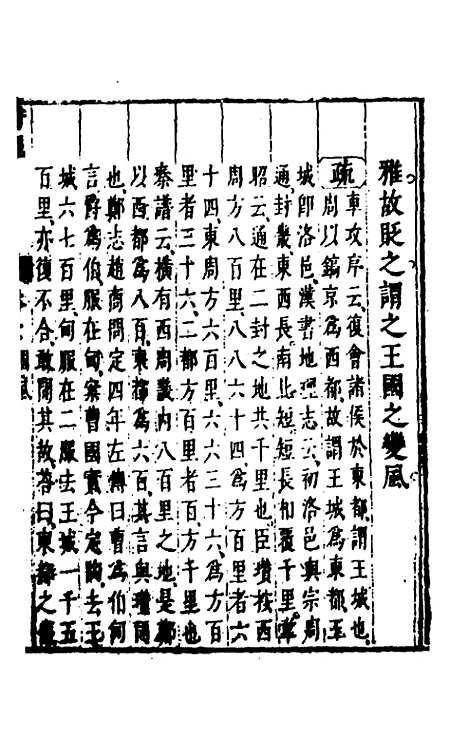 雅故貶之謂之王國之變風
疏
車攻序云復會諸侯於東都謂王城也
周以鎬京為西都故謂王城為東都王
城即洛邑漢書地理志云初洛邑與宗周
通封畿東西長南北短短長相覆千里韋
昭云通在二封之地共千里也臣瓚按西
周方八百里八八六十四為方百里者六
十四東周方六百里六六三十六為方百
里者三十六二都方百里者百方千里也
秦譜云横有西周畿内八百里之地是鄭
以西都為八百東都為六百其言與瓚同
也鄭志趙商問定四年左傳曰曹為伯甸
言爵為伯服在甸案曹國實今定陶去王
城六七百里甸服在二服去王城一千五
百里亦復不合敢問其故答曰東都之